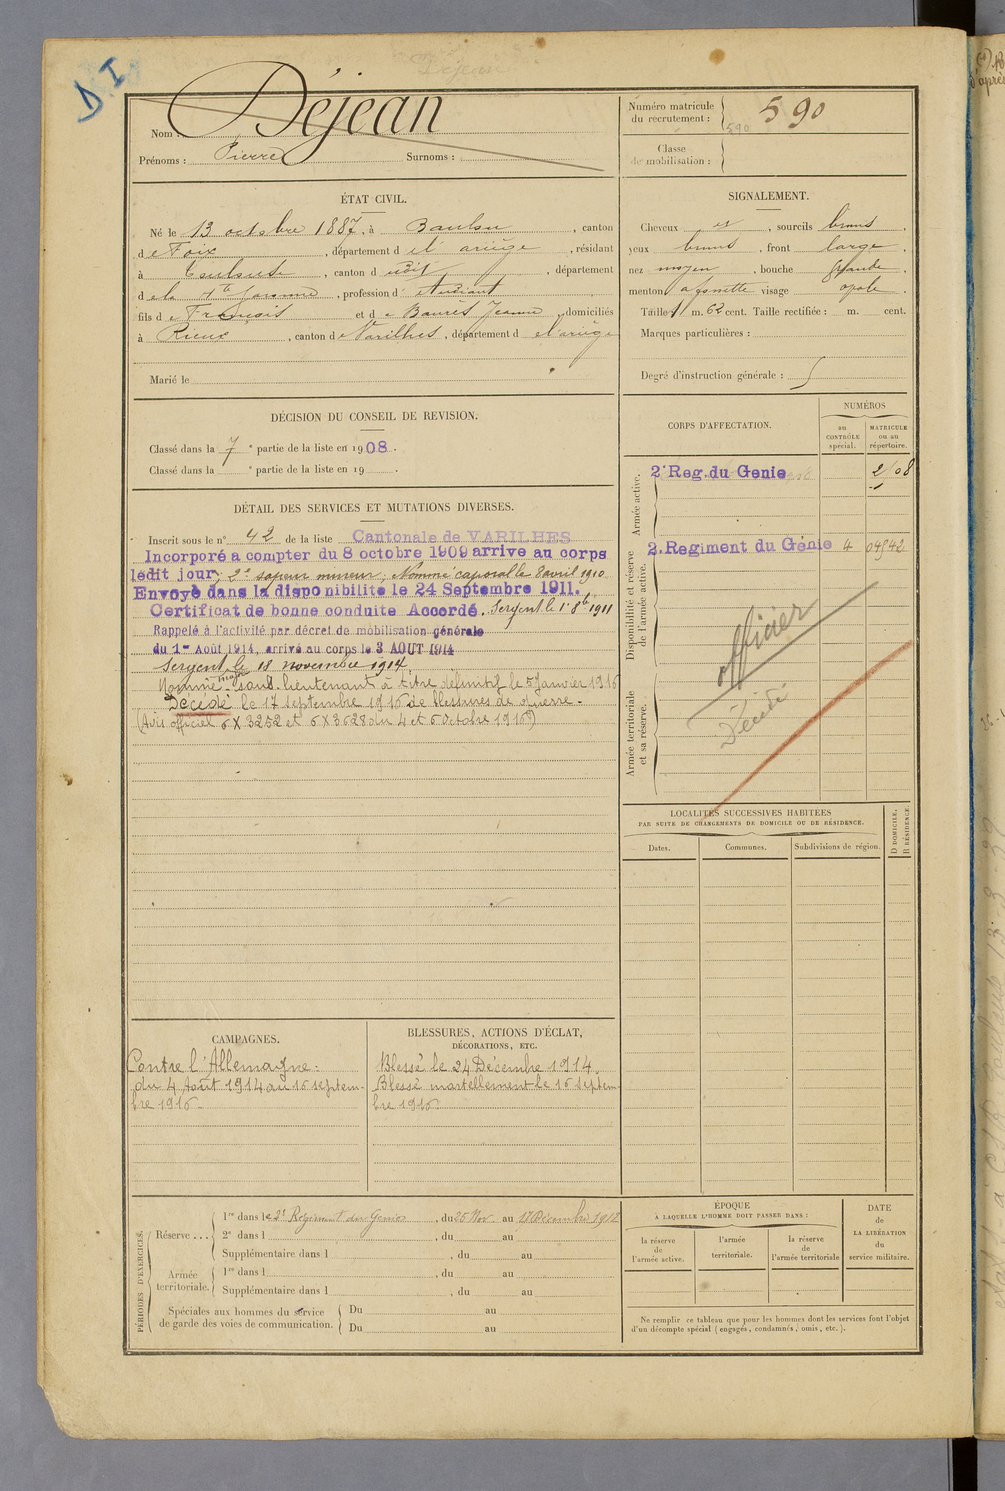 D I
Déjean
Nom :
Déjean
Prénoms : Pierre Surnoms :
Numéro matricule
du recrutement : 590
590
Classe
de mobilisation :
ÉTAT CIVIL.
Né le 13 octobre 1887, à Baulou, canton
de Foix, département de l'ariège, résidant
à Toulouse, canton dudit, département
de la Hte Garonne, profession d'Etudiant
fils de François et de Baurès Jeanne, domiciliés
à Rieux, canton de Varilhes, département de l'ariège
Marié le
SIGNALEMENT.
Cheveux et, sourcils bruns,
yeux bruns, front large,
nez moyen, bouche grande,
menton à fossette visage ovale.
Taille : 1 m. 62 cent. Taille rectifiée : m. cent.
Marques particulières :
Degré d'instruction générale :
DÉCISION DU CONSEIL DE REVISION.
Classé dans la 7e partie de la liste en 1908.
Classé dans la e partie de la liste en 19 .
CORPS D'AFFECTATION.
NUMÉROS
au
CONTRÔLE
spécial.
MATRICULE
ou au
répertoire.
Armée active.
2e Reg. du Genie 2108
Disponibilité et réserve
de l'armée active.
2. Regiment du Génie 4 04942
officier
Décédé
Armée territoriale
et sa réserve.
DÉTAIL DES SERVICES ET MUTATIONS DIVERSES.
Inscrit sous le n° 42 de la liste Cantonale de VARILHES
Incorporé a compter du 8 octobre 1909 arrive au corps
ledit jour; 2e sapeur mineur; Nommé caporal le 8 avril 1910
Envoyé dans la disponibilite le 24 Septembre 1911.
Certificat de bonne conduite Accordé. Sergent le 1er 8bre 1911
Rappelé à l'activité par décret de mobilisation générale
du 1er Août 1914, arrivé au corps le 3 AOUT 1914
Sergent major le 18 novembre 1914.
Nommé sous-lieutenant à titre définitif le 5 Janvier 1916
Décédé le 17 septembre 1916 de blessures de guerre.
(Avis officiel 6X 3252 et 6X3628 du 4 et 6 Octobre 1916)
LOCALITÉS SUCCESSIVES HABITÉES
PAR SUITE DE CHANGEMENTS DE DOMICILE OU DE RÉSIDENCE.
Dates.
Communes.
Subdivisions de région.
D DOMICILE.
R RÉSIDENCE.
CAMPAGNES.
Contre l'Allemagne :
du 4 Août 1914 au 16 septem-
bre 1916.
BLESSURES, ACTIONS D'ÉCLAT,
DÉCORATIONS, ETC.
Blessé le 24 Décembre 1914.
Blessé mortellement le 16 septem-
bre 1916.
PÉRIODES D'EXERCICES.
Réserve ...
1re dans le 2e Régiment du Génie, du 25 Nov. au 17 Décembre 1912
2e dans l , du au
Supplémentaire dans l , du au
Armée
territoriale.
1re dans l , du au
Supplémentaire dans l , du au
Spéciales aux hommes du service
de garde des voies de communication.
Du au
Du au
ÉPOQUE
À LAQUELLE L'HOMME DOIT PASSER DANS :
la réserve
de
l'armée active.
l'armée
territoriale.
la réserve
de
l'armée territoriale
DATE
de
LA LIBÉRATION
du
service militaire.
Ne remplir ce tableau que pour les hommes dont les services font l'objet
d'un décompte spécial (engagés, condamnés, omis, etc.).